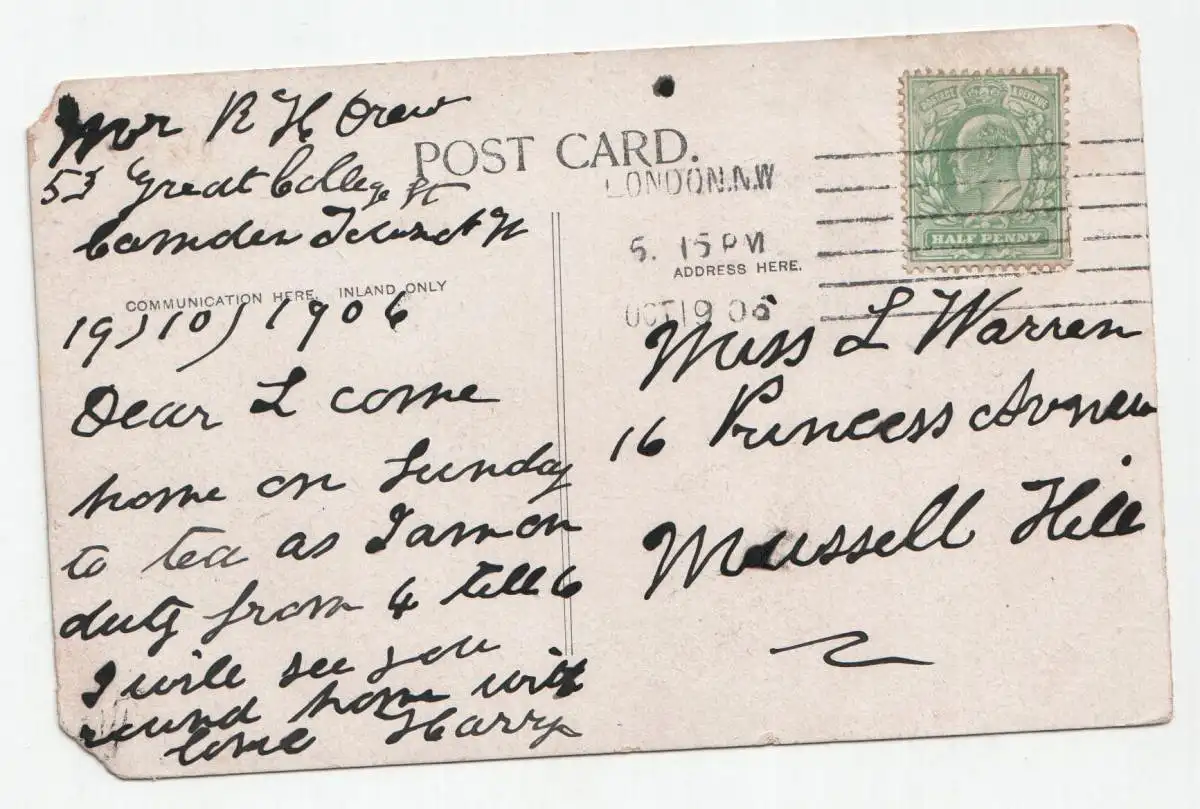 Mr R H Drew
53 Great College St
Camden Town N W
POST CARD.
COMMUNICATION HERE. INLAND ONLY
19/10/1906
Dear L come
home on Sunday
to tea as I am on
duty from 4 till 6
I will see you
round home with
love Harry
POSTAGE & REVENUE
HALF PENNY
LONDON.N.W
5. 15 PM
OCT 19 06
ADDRESS HERE.
Miss L Warren
16 Princess Avenue
Mussell Hill